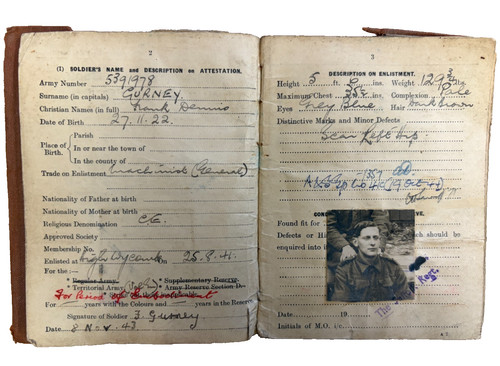 2
(1) SOLDIER'S NAME and DESCRIPTION on ATTESTATION.
Army Number 5391978
Surname (in capitals) GURNEY
Christian Names (in full) Frank Dennis
Date of Birth 27.11.22.
Place of Birth.
Parish
In or near the town of
In the county of
Trade on Enlistment Machinist (General)
Nationality of Father at birth
Nationality of Mother at birth
Religious Denomination C.E.
Approved Society
Membership No.
Enlisted at High Wycombe 25.8.41.
For the :—
* Regular Army. * Supplementary Reserve.
* Territorial Army. * Army Reserve Section D.
For Period of Embodiment
For years with the Colours and years in the Reserve.
Signature of Soldier F. Gurney
Date 8 Nov 43
3
DESCRIPTION ON ENLISTMENT.
Height 5 ft. ins. Weight 129¾ lbs.
Maximum Chest ins. Complexion Pale
Eyes Grey Blue Hair Dark Brown
Distinctive Marks and Minor Defects
Scar Left Hip
Found fit for
Defects or
should be
enquired into
Date 19
Initials of M.O. i/c
The
Regt.